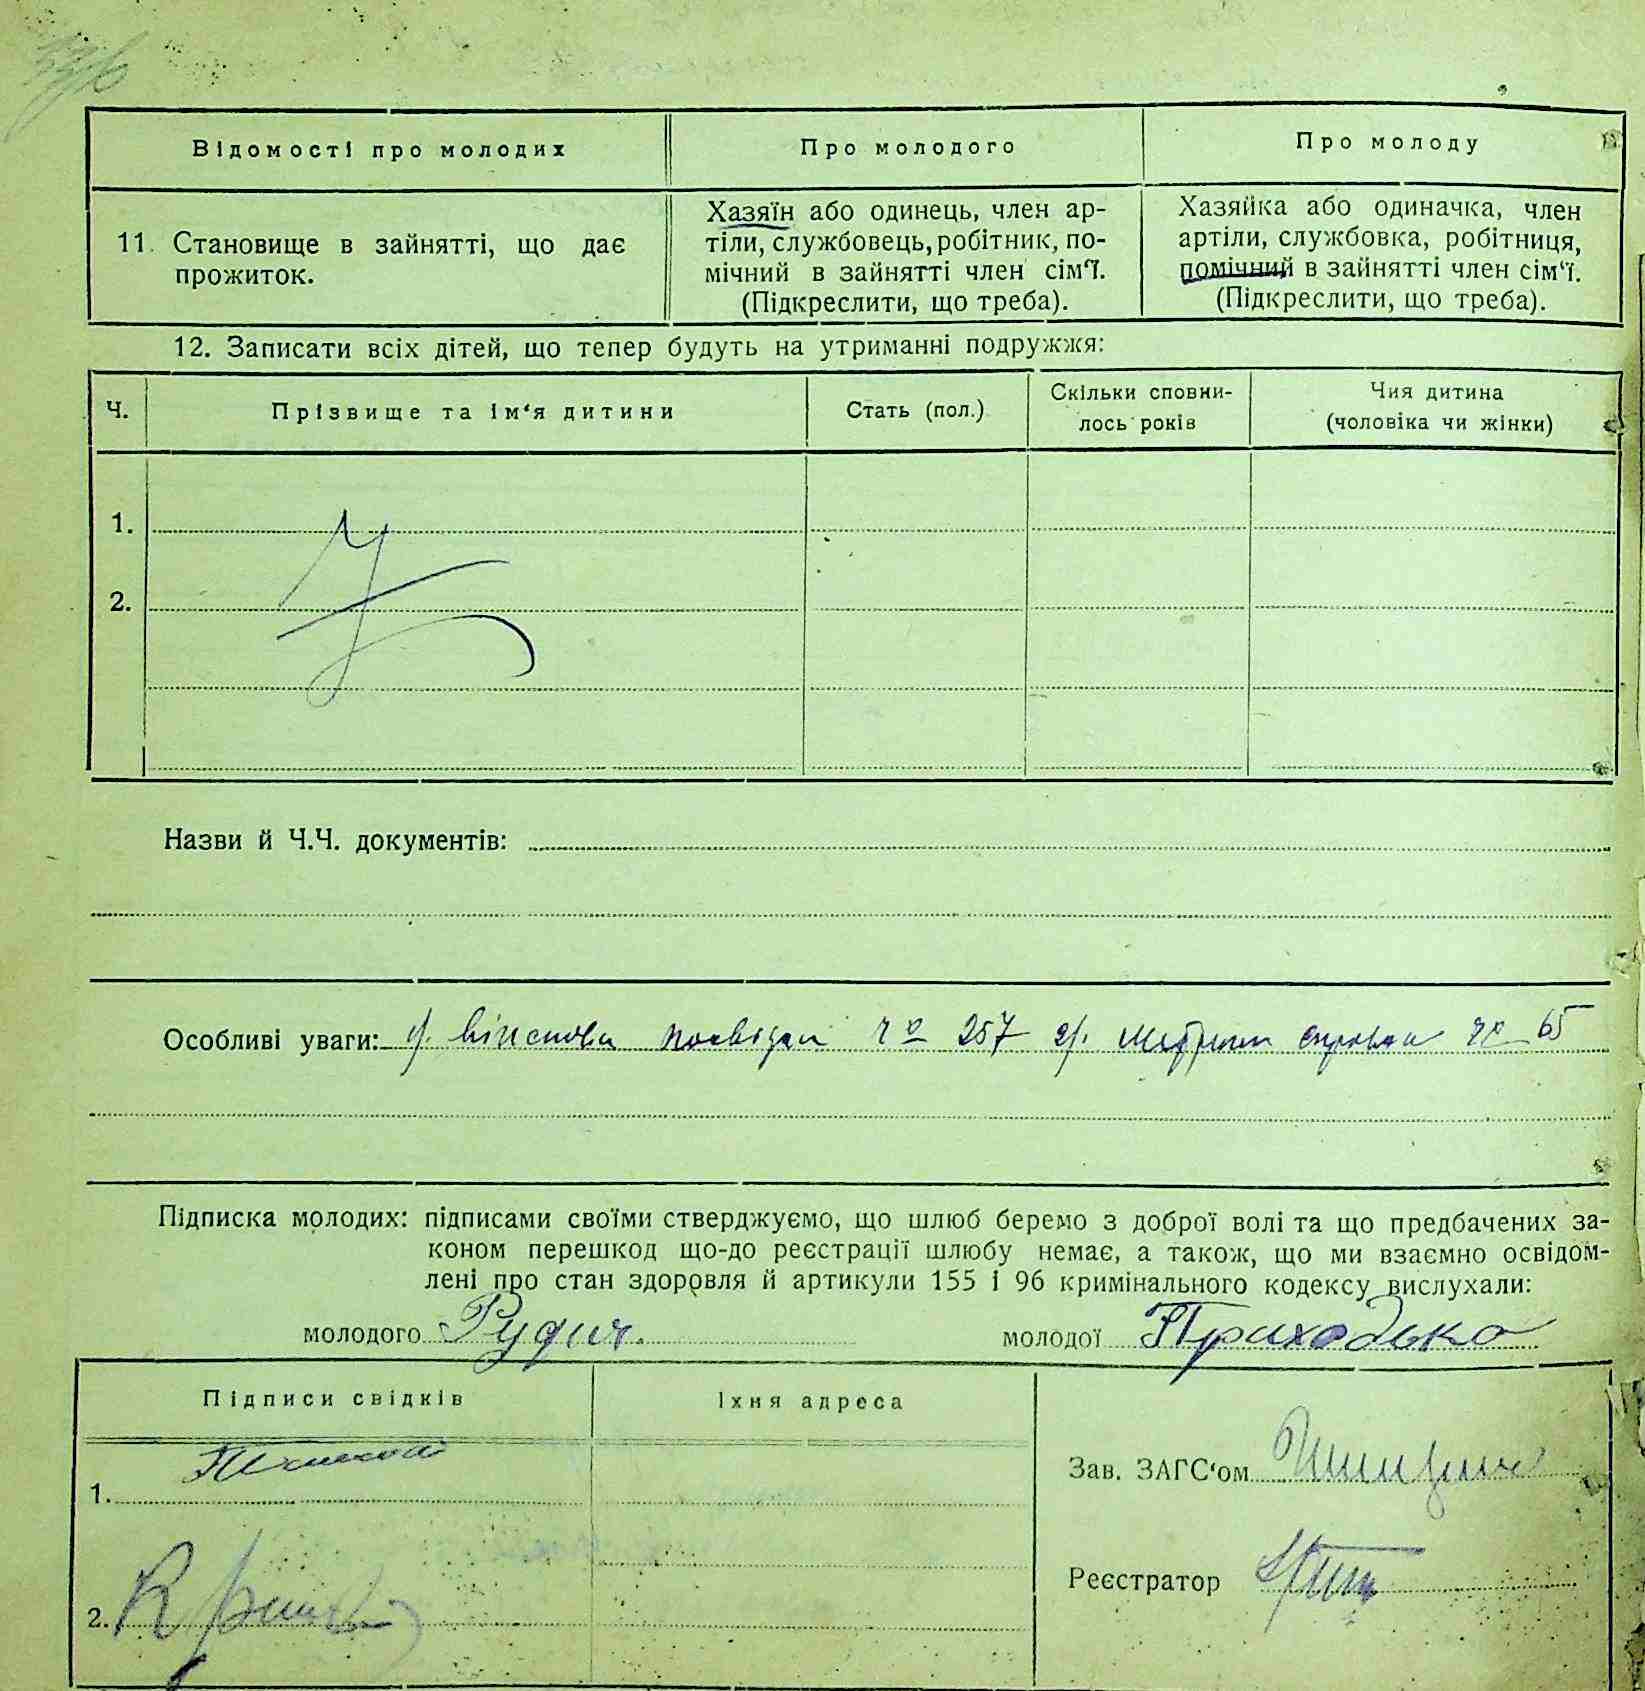 Відомості про молодих
Про молодого
Про молоду
11. Становище в зайнятті, що дає
прожиток.
Хазяїн або одинець, член ар-
тіли, службовець, робітник, по-
мічний в зайнятті член сім‘ї.
(Підкреслити, що треба).
Хазяйка або одиначка, член
артіли, службовка, робітниця,
помічний в зайнятті член сім‘ї.
(Підкреслити, що треба).
12. Записати всіх дітей, що тепер будуть на утриманні подружжя:
Ч.
Прізвище та ім‘я дитини
Стать (пол.)
Скільки сповни-
лось років
Чия дитина
(чоловіка чи жінки)
1.
2.
Назви й Ч.Ч. документів:
Особливі уваги: 1/. 257 2/. 65
Підписка молодих: підписами своїми стверджуємо, що шлюб беремо з доброї волі та що предбачених за-
коном перешкод що-до реєстрації шлюбу немає, а також, що ми взаємно освідом-
лені про стан здоровля й артикули 155 і 96 кримінального кодексу вислухали:
молодого Рудич.
молодої Приходько
Підписи свідків
Їхня адреса
1.
2.
Зав. ЗАГС‘ом
Реєстратор